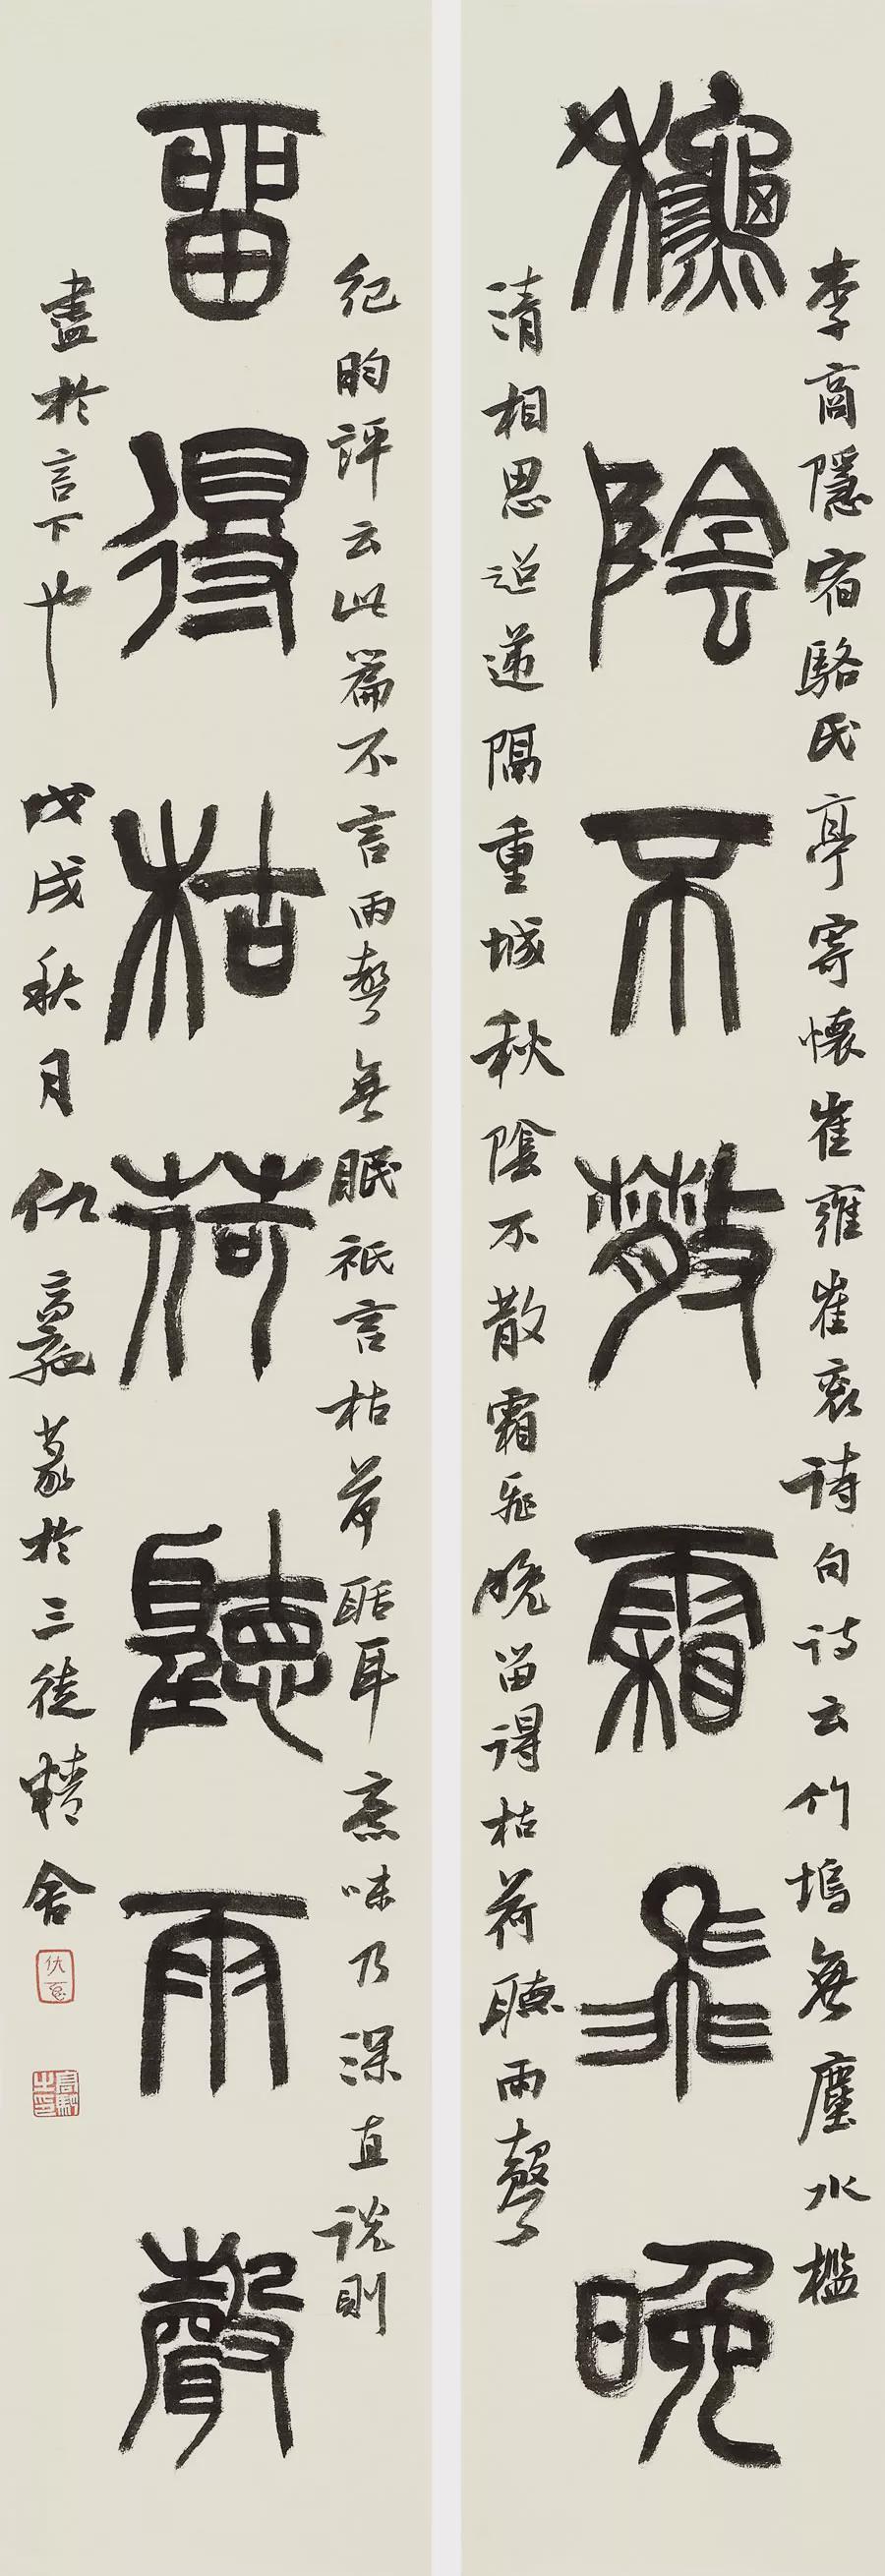 李商隱宿駱氏亭寄懷崔雍崔袞詩句詩云竹塢無塵水檻
秋陰不散霜飛晚
清相思迢遞隔重城秋陰不散霜飛晚留得枯荷聽雨聲
紀昀評云此篇不言雨聲無眠祇言枯荷聒耳意味乃深直說則
留得枯荷聽雨聲
盡於言下也 戊戌秋月仇高馳篆於三徙精舍